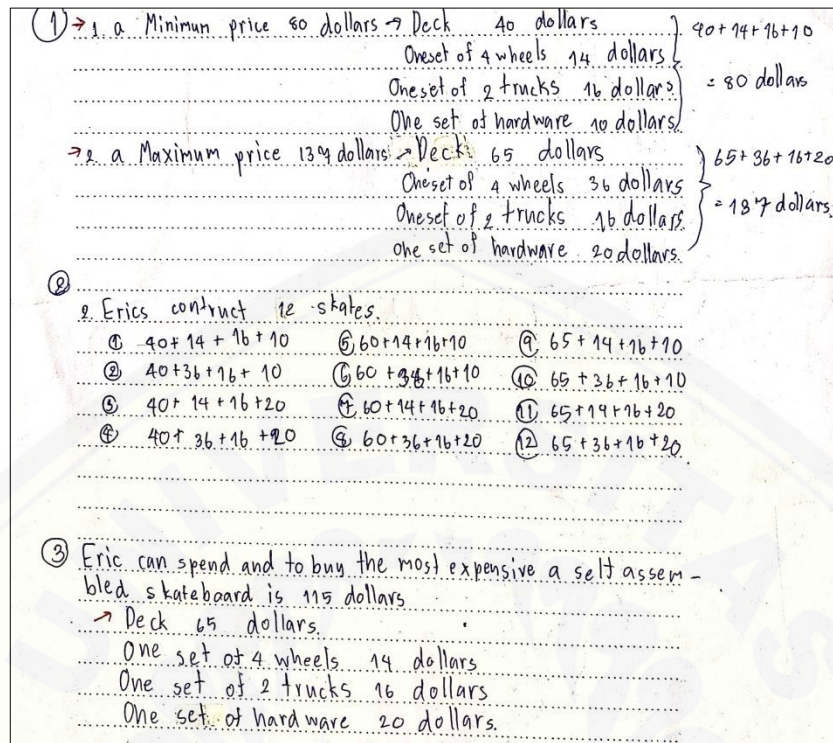 ① → 1. a Minimun price 80 dollars → Deck 40 dollars
Oneset of 4 wheels 14 dollars
Oneset of 2 trucks 16 dollars
One set of hardware 10 dollars
40+14+16+10
= 80 dollars
→ 2. a Maximum price 137 dollars → Deck 65 dollars
Oneset of 4 wheels 36 dollars
Oneset of 2 trucks 16 dollars
one set of hardware 20 dollars.
65+36+16+20
= 187 dollars.
②
2. Erics contruct 12 skates.
① 40+14+16+10 ⑤ 60+14+16+10 ⑨ 65+14+16+10
② 40+36+16+10 ⑥ 60+36+16+10 ⑩ 65+36+16+10
③ 40+14+16+20 ⑦ 60+14+16+20 ⑪ 65+14+16+20
④ 40+36+16+20 ⑧ 60+36+16+20 ⑫ 65+36+16+20
③ Eric can spend and to buy the most expensive a self assem-
bled skateboard is 115 dollars
→ Deck 65 dollars.
One set of 4 wheels 14 dollars
One set of 2 trucks 16 dollars
One set of hard ware 20 dollars.
UNIVERSITAS